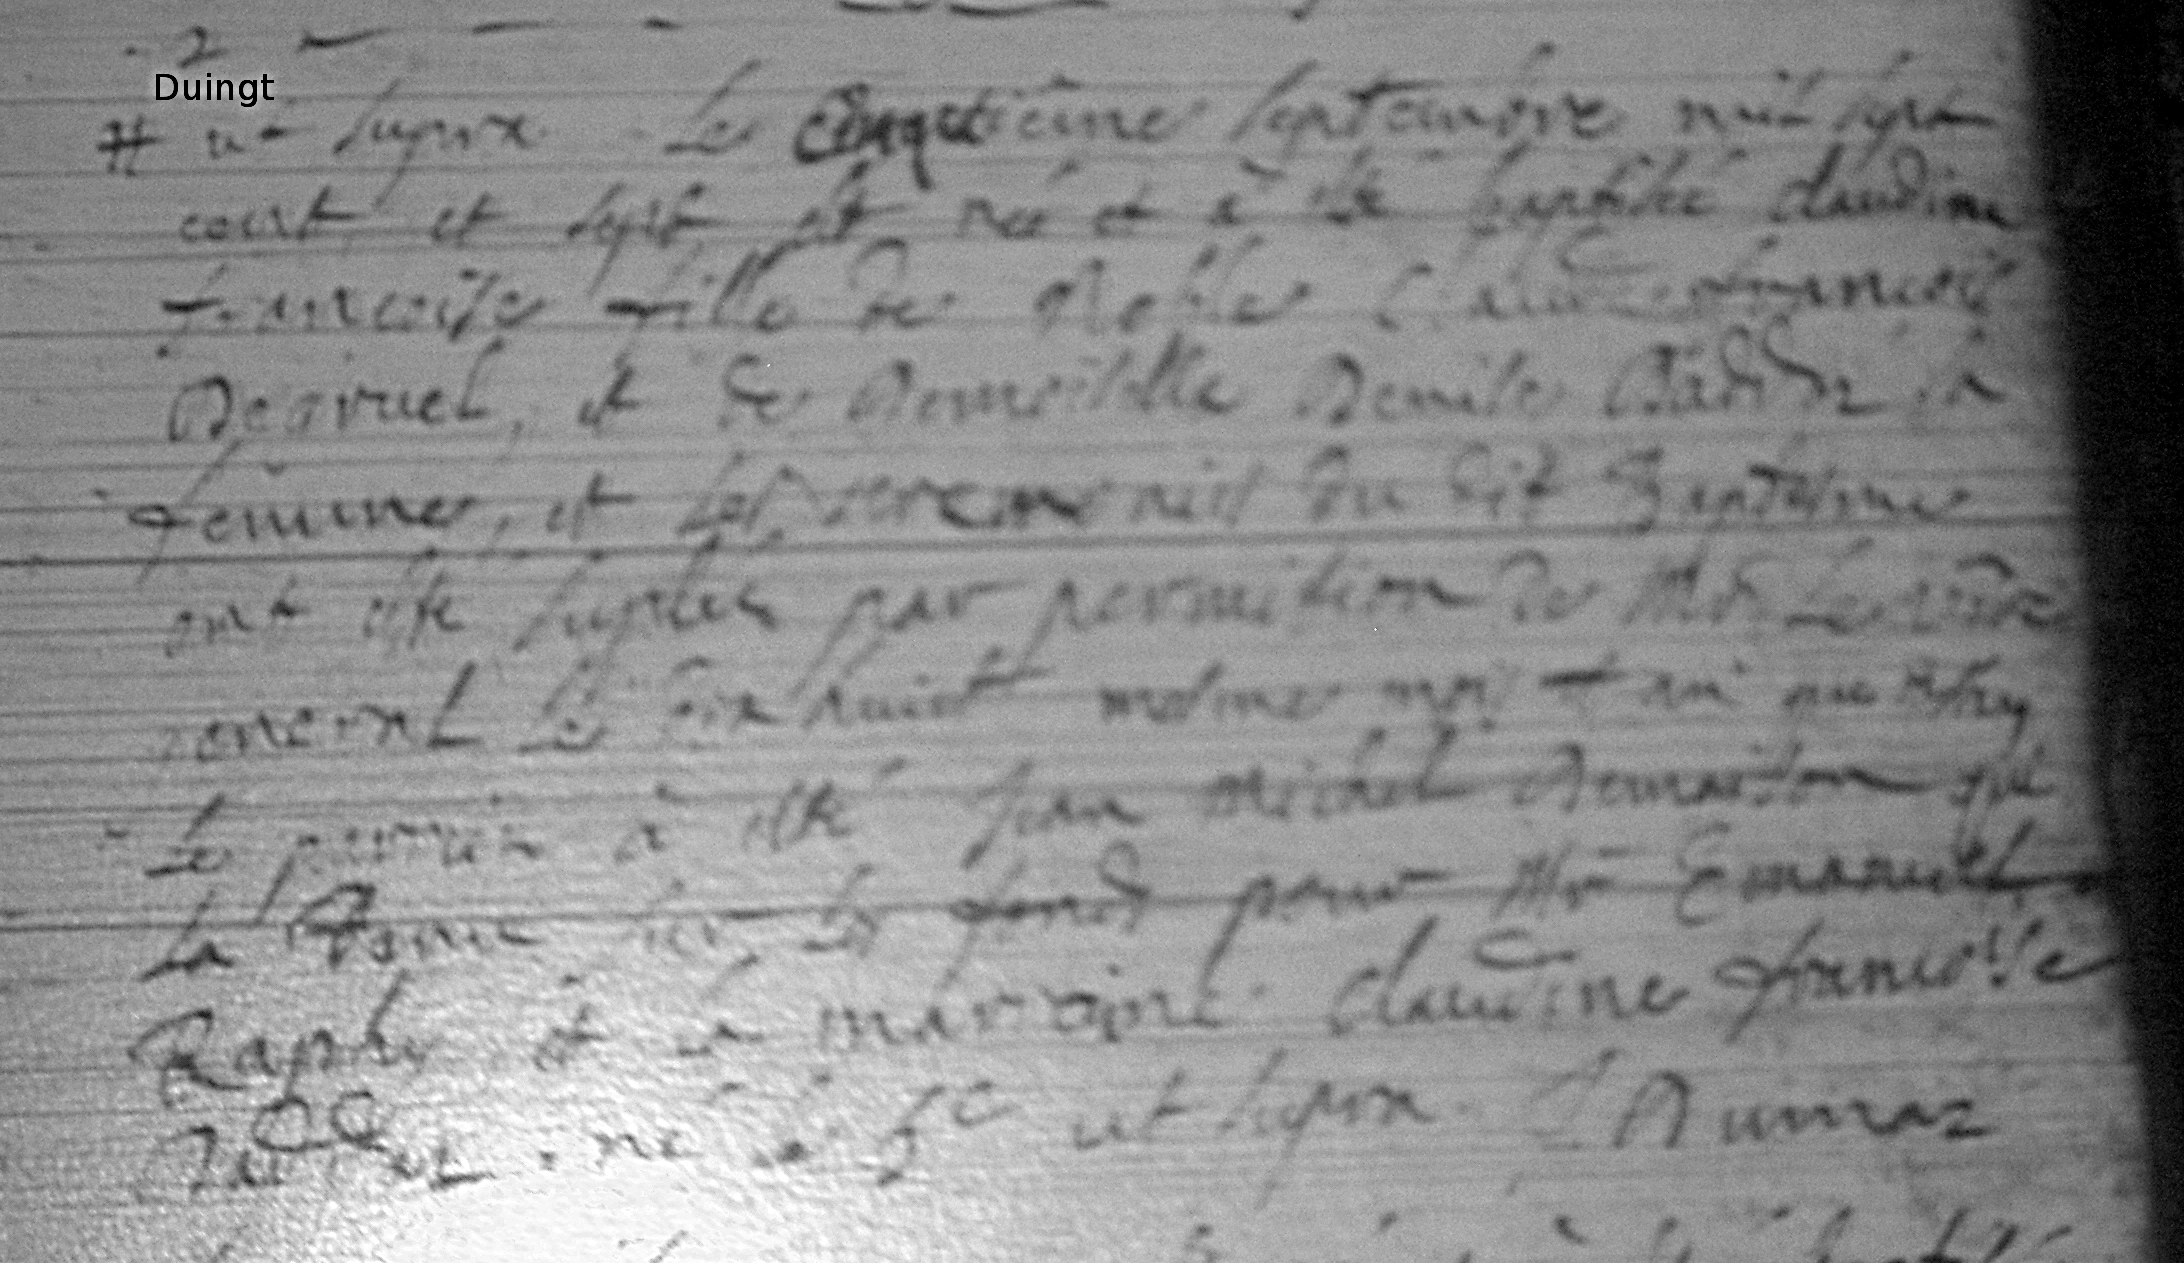 2
Duingt
# ut supra Le cinquieme septembre mil sept
cent et sept est neé et à esté baptisée claudine
francoise fille de Noble Claude francois
Degruel, et de Demoiselle Denise sa
femme, et les ceremonies du dit Baptesme
ont esté supleés par permission de Mr Le vicaire
general Le dixhuict mesme mois
Le parrin à esté Jean Michel qui
La tenue sur les fonds pour Mr Emanuel
Raphy et la marraine claudine francoise
né le 5e ut supra Dumaz